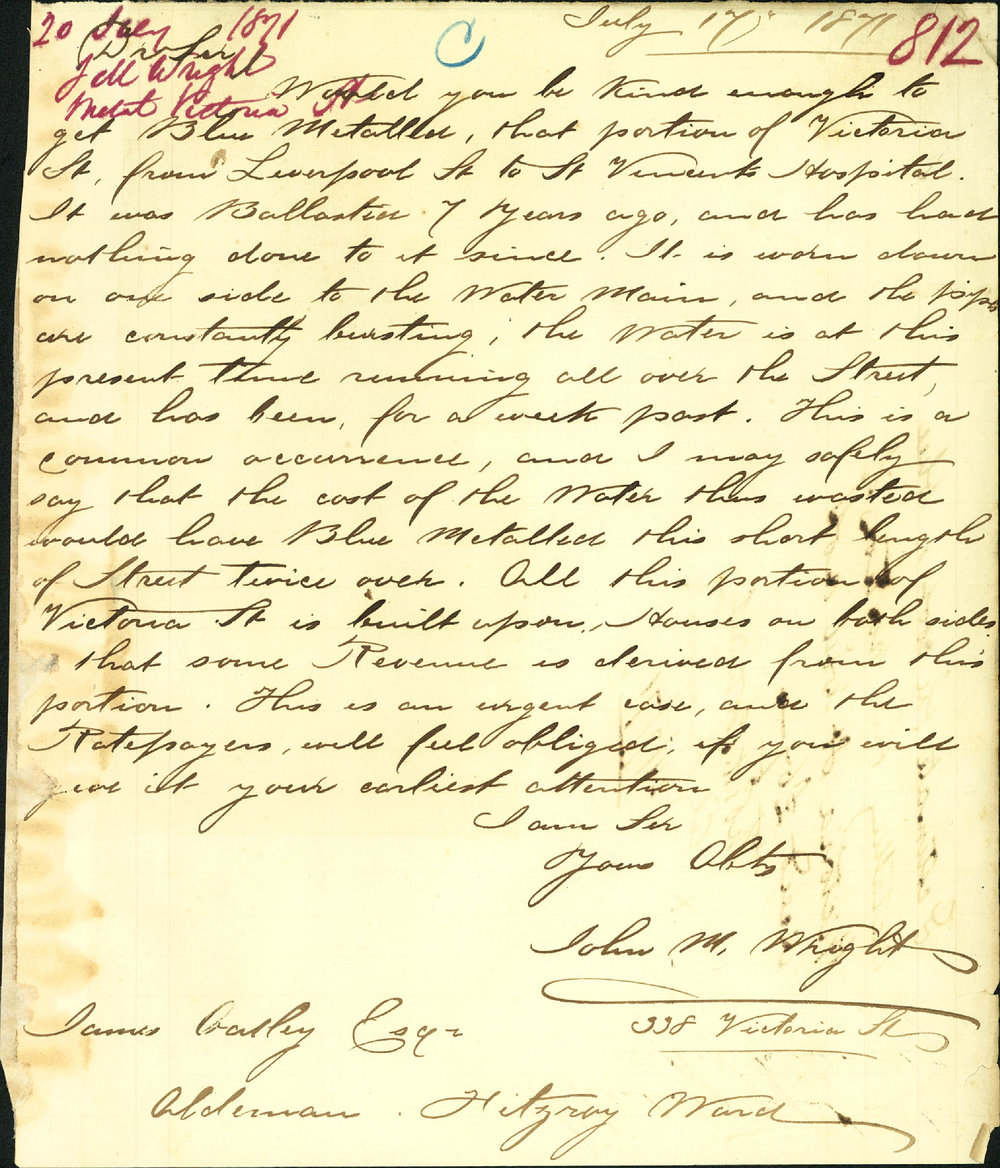 20 July 1871
July 17, 1871
C
812
Dr Sir
J M Wright
Metal Victoria St
Would you be kind enough to
get Blue Metalled, that portion of Victoria
St, from Liverpool St to St Vincents Hospital.
It was Ballasted 7 Years ago, and has had
nothing done to it since. It is worn down
on one side to the Water Main, and the pipes
are constantly bursting, the Water is at this
present time running all over the Street,
and has been, for a week past. This is a
common occurrence, and I may safely
say that the cost of the Water thus wasted
would have Blue Metalled this short length
of Street twice over. All this portion of
Victoria St is built upon, Houses on both sides
that some Revenue is derived from this
portion. This is an urgent case, and the
Ratepayers, will feel obliged, if you will
give it your earliest attention
I am Sir
Yours Obtly
John M. Wright
338 Victoria St
James Oatley Esqr
Alderman. Fitzroy Ward